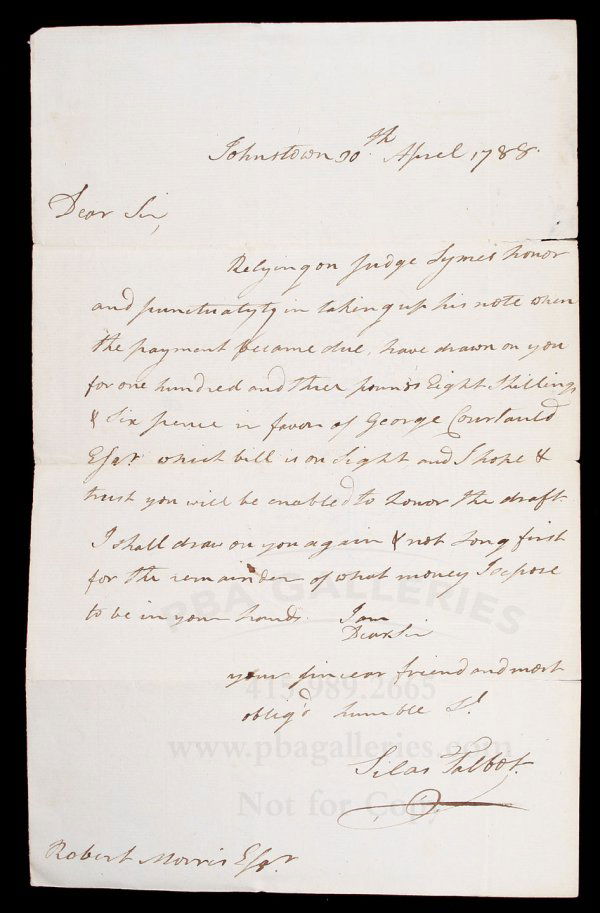 Johnstown 30th April 1788.
Dear Sir,
Relying on Judge Symes honor
and punctualyty in taking up his note when
the payment became due, have drawn on you
for one hundred and three pounds Eight Shillings
& Six pence in favor of George Courtauld
Esqr. which bill is on Sight and I hope &
trust you will be enabled to honor the draft.
I shall draw on you again & not long first
for the remainder of what money I
to be in your hands. I am
Dear Sir
your sincear friend and most
oblig'd humble St
Silas Talbot.
Robert Morris Esqr
PBA GALLERIES
415.989.2665
www.pbagalleries.com
Not for Copy